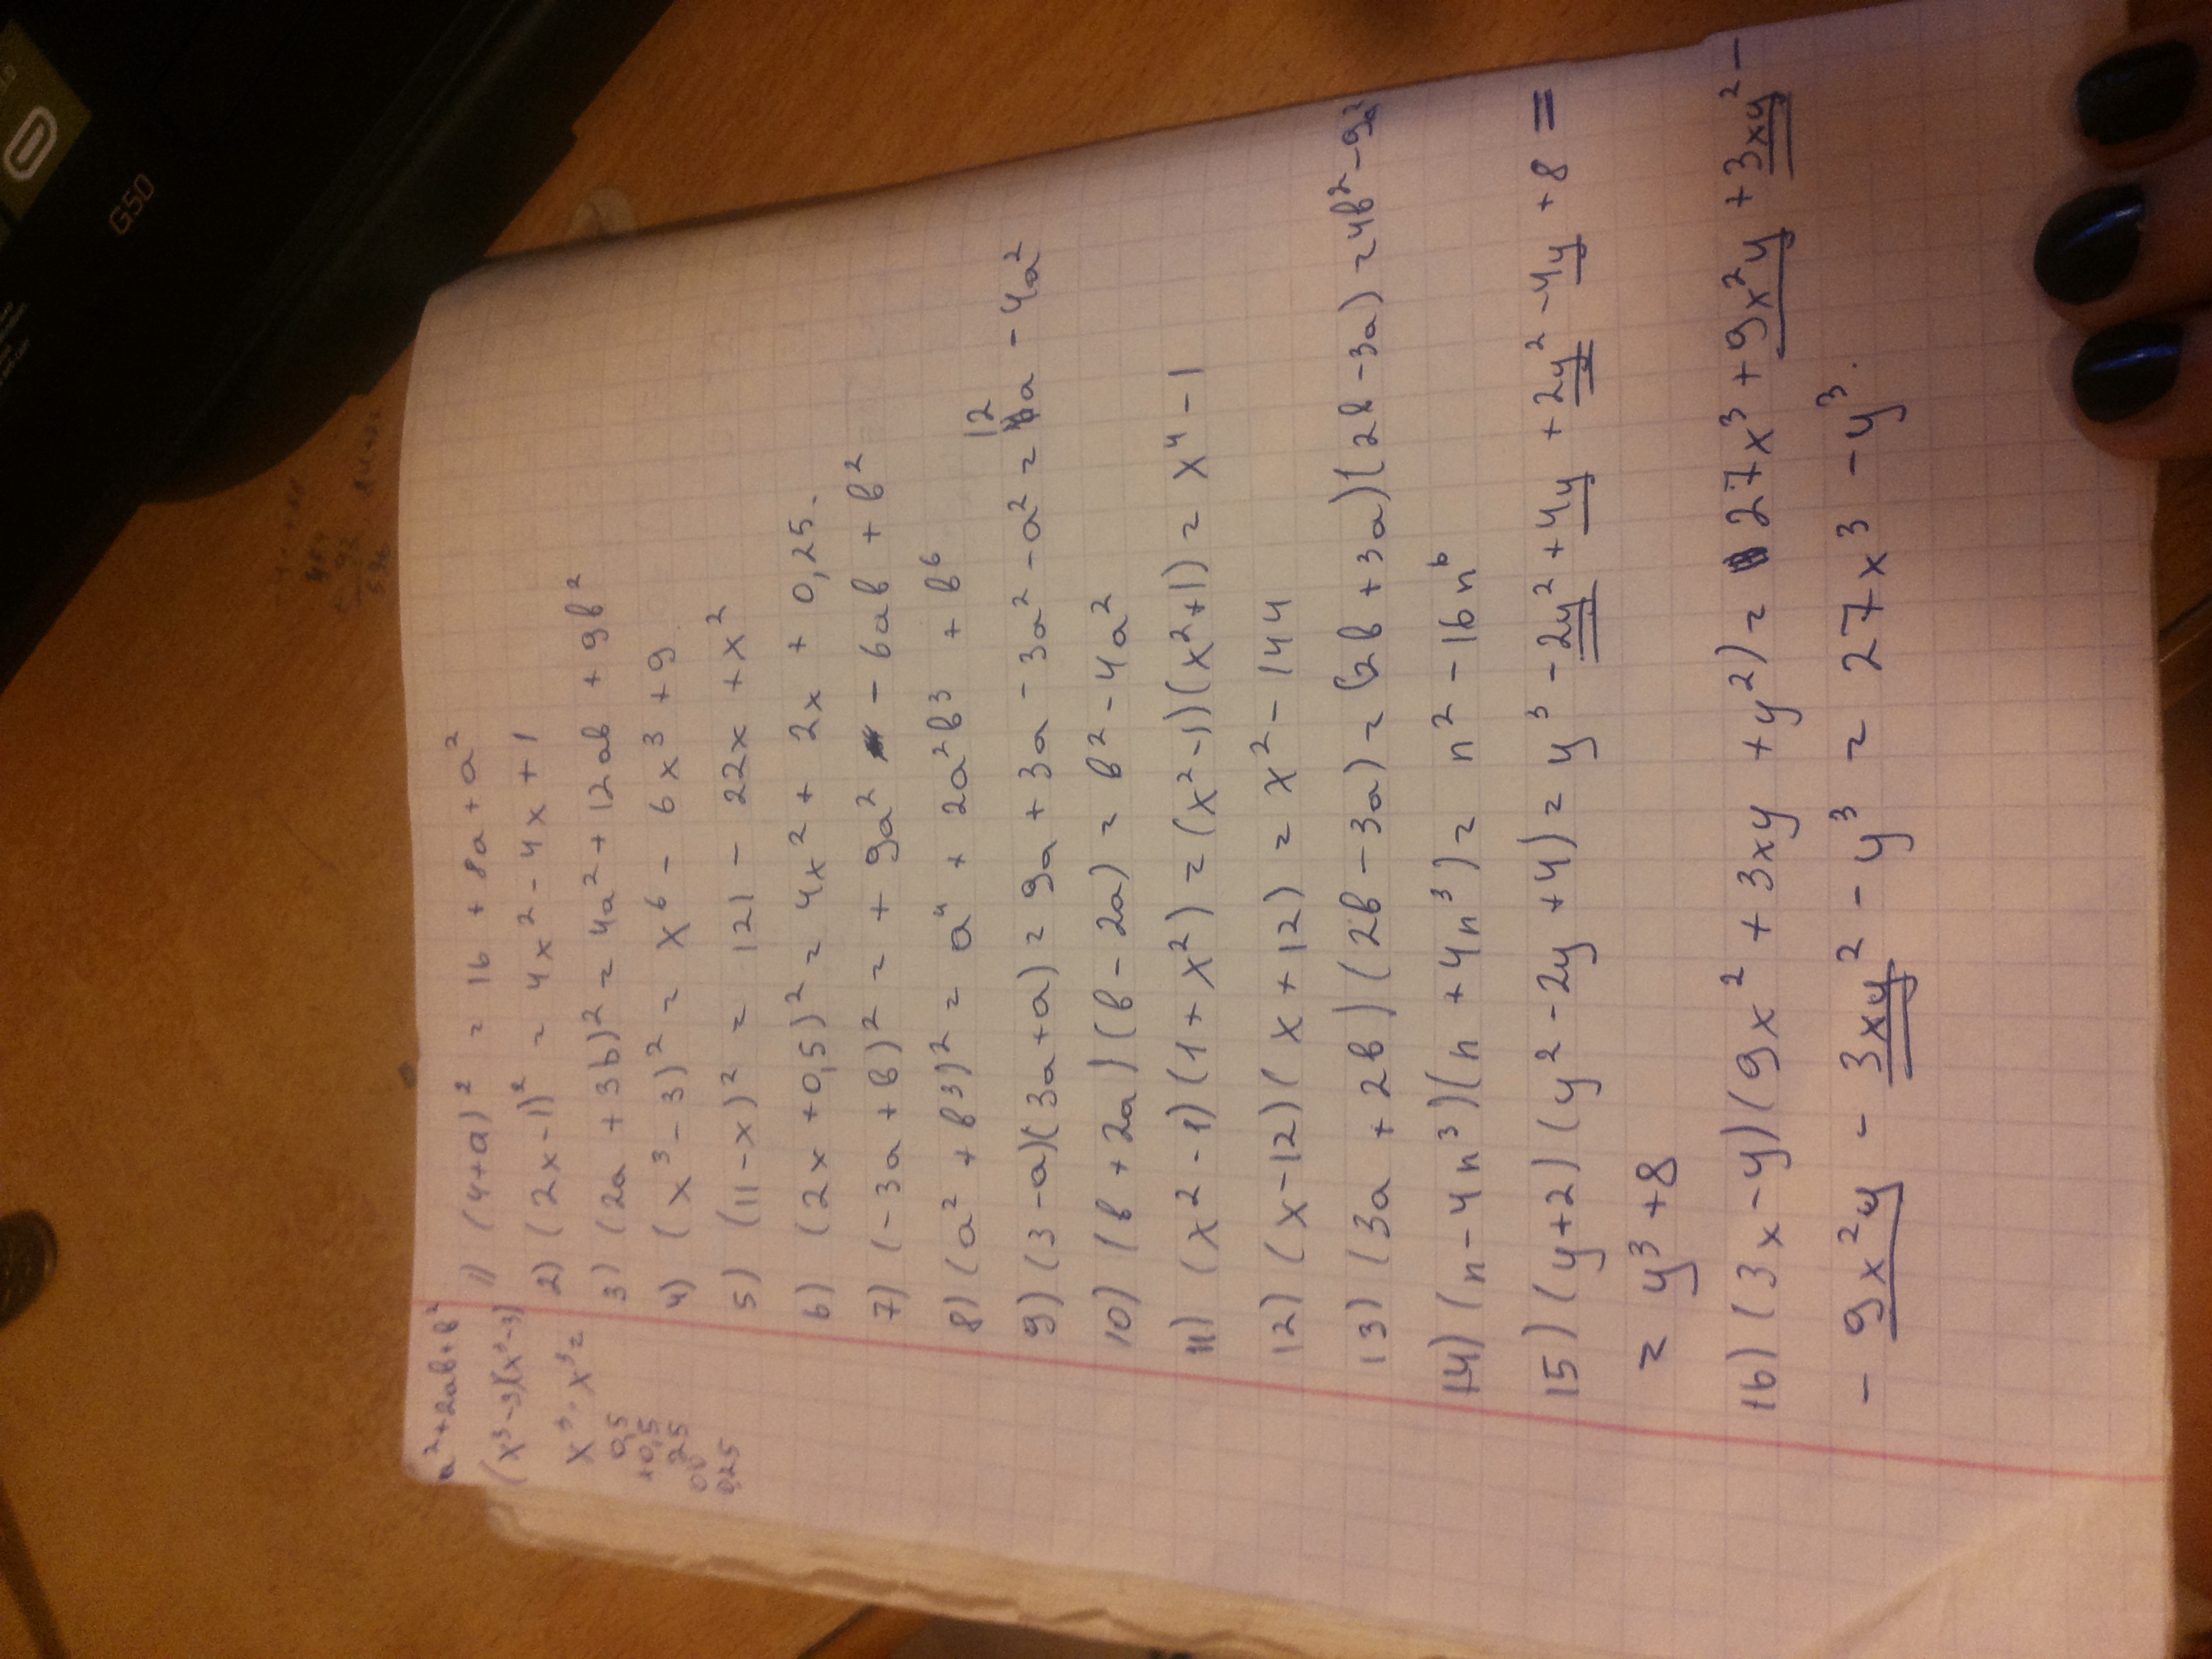 a²+2ab+b²
(x³-3)(x³-3)
x³·x³=
0,5
×0,5
25
00
0,25
1) (4+a)² = 16 + 8a + a²
2) (2x-1)² = 4x² - 4x + 1
3) (2a + 3b)² = 4a² + 12ab + 9b²
4) (x³ - 3)² = x⁶ - 6x³ + 9
5) (11 - x)² = 121 - 22x + x²
6) (2x + 0,5)² = 4x² + 2x + 0,25.
7) (-3a + b)² = + 9a² - 6ab + b²
8) (a² + b³)² = a⁴ + 2a²b³ + b⁶
9) (3-a)(3a+a) = 9a + 3a - 3a² - a² = 12a - 4a²
10) (b + 2a)(b - 2a) = b² - 4a²
11) (x² - 1)(1 + x²) = (x² - 1)(x² + 1) = x⁴ - 1
12) (x - 12)(x + 12) = x² - 144
13) (3a + 2b)(2b - 3a) = (2b + 3a)(2b - 3a) = 4b² - 9a²
14) (n - 4n³)(n + 4n³) = n² - 16n⁶
15) (y+2)(y² - 2y + 4) = y³ - 2y² + 4y + 2y² - 4y + 8 =
= y³ + 8
16) (3x - y)(9x² + 3xy + y²) = 27x³ + 9x²y + 3xy² -
- 9x²y - 3xy² - y³ = 27x³ - y³.
G50